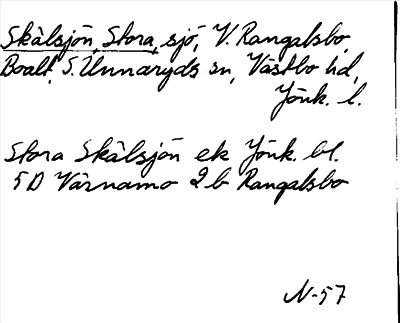 Skälsjön, Stora, sjö, V. Rangalsbo,
Boalt, S. Unnaryds sn, Västbo hd,
Jönk. l.
Stora Skälsjön ek Jönk. bl.
5D Värnamo 2b Rangalsbo
N-57